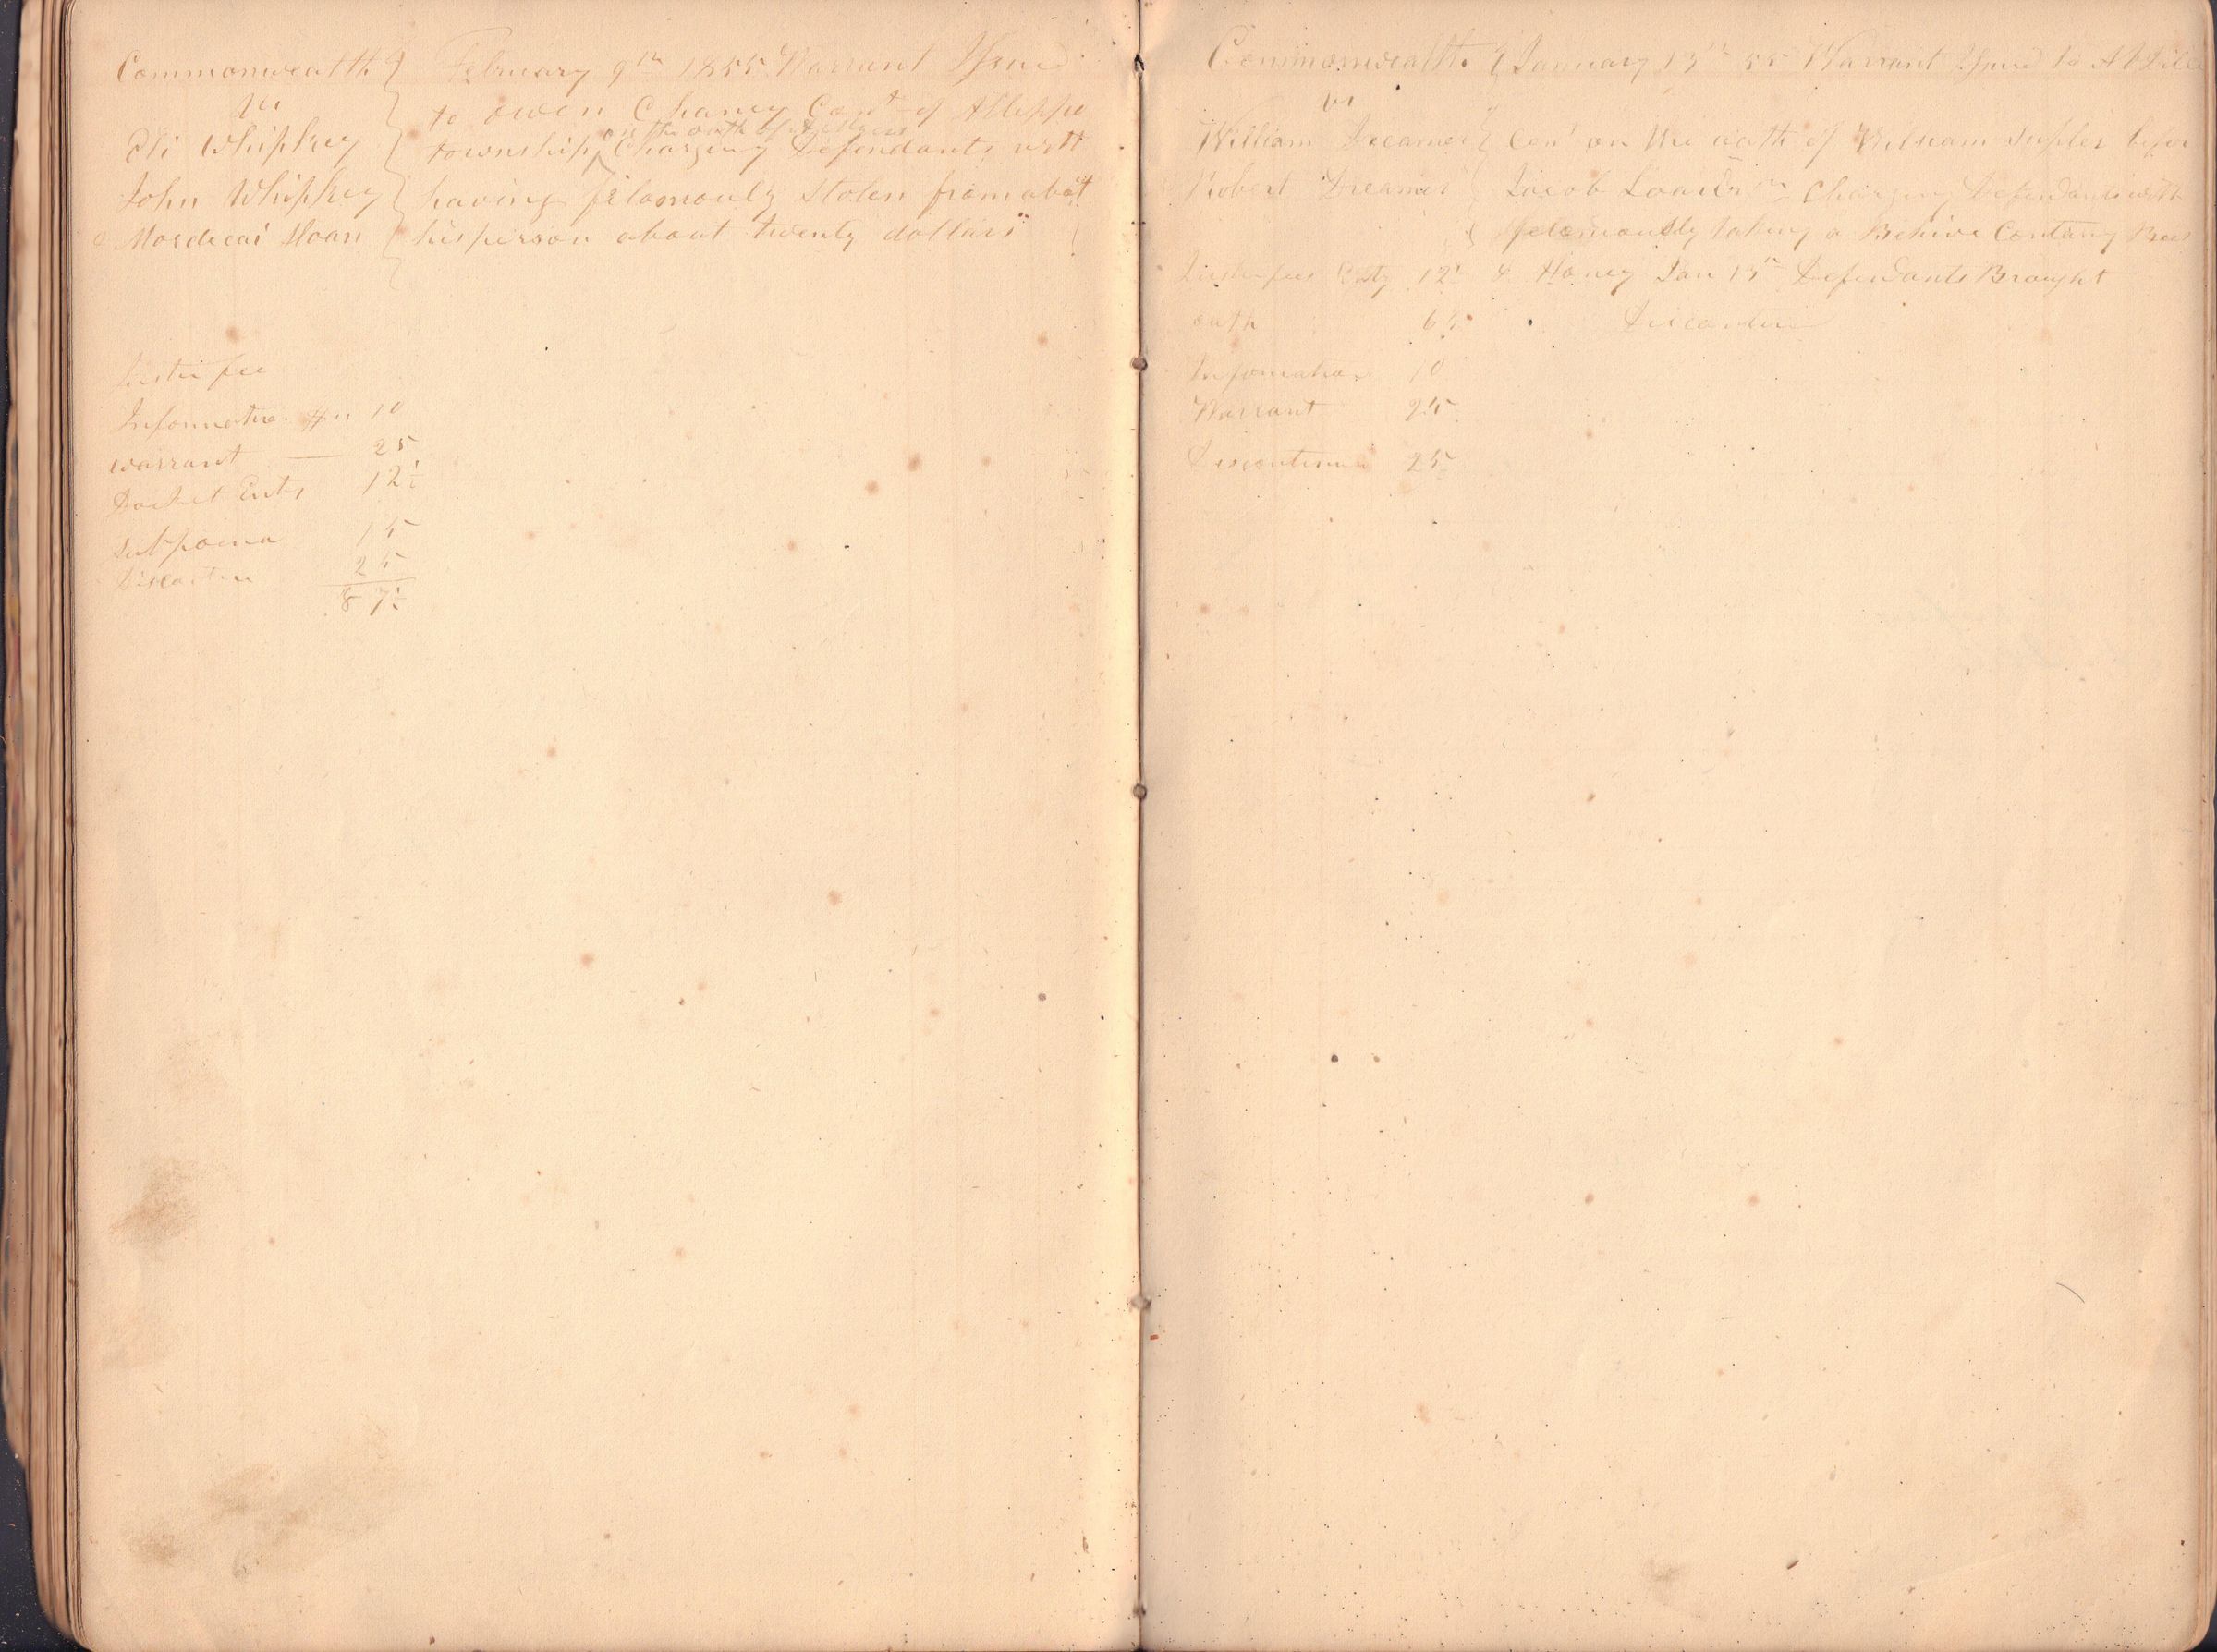 Commonwealth
vs
Eli Whipkey
John Whipkey
Mordecai Sloan
February 9th 1855 Warrant Issued
to owen Chaney Cont of Alleppo
on the oath of
township Charging Defendants with
having felamouly Stolen from about
his person about twenty dollars
Justis fee
Information 10
warrant — 25
Docket Enty 12½
Subpoena 15
Discontin 25
87½
Commonwealth
vs
William Dreamer
Robert Dreamer
January 13th 55 Warrant Issued to
Con on the oath of William Supler befor
Jacob Loar Charging Defendants with
feloniously taking a Behive Contany Bees
& Honey Jan 13th Defendants Brought
Discontinu
Justis fees Enty 12½
oath 6¼
Information 10
Warrant 25
Discontinu 25